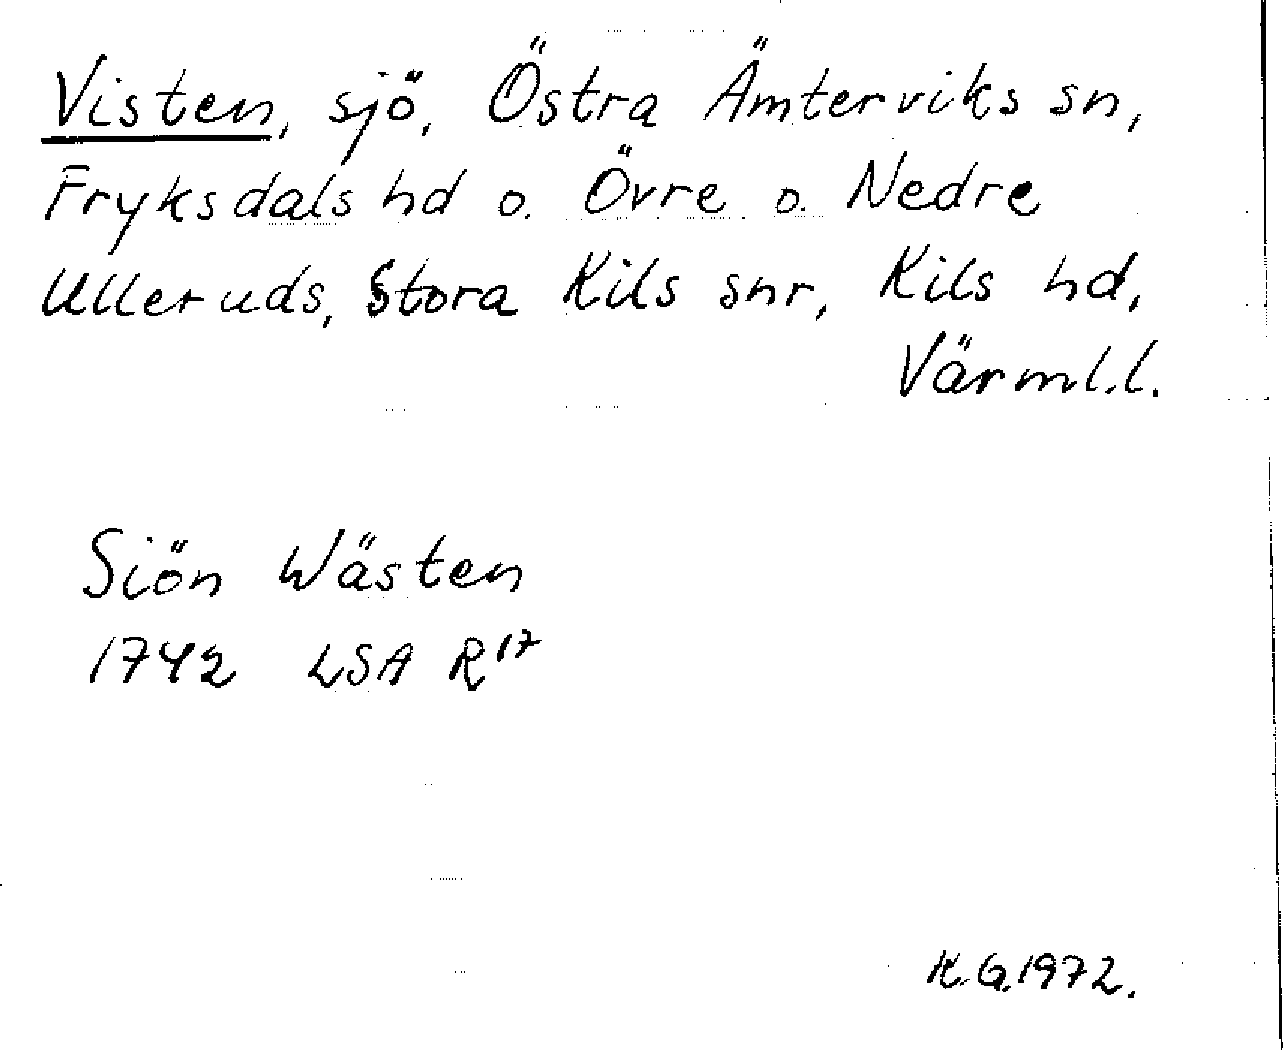 Visten, sjö, Östra Ämterviks sn,
Fryksdals hd o. Övre o. Nedre
Ulleruds, Stora Kils snr, Kils hd,
Värml.l.
Siön Wästen
1742 LSA R17
K.G.1972.